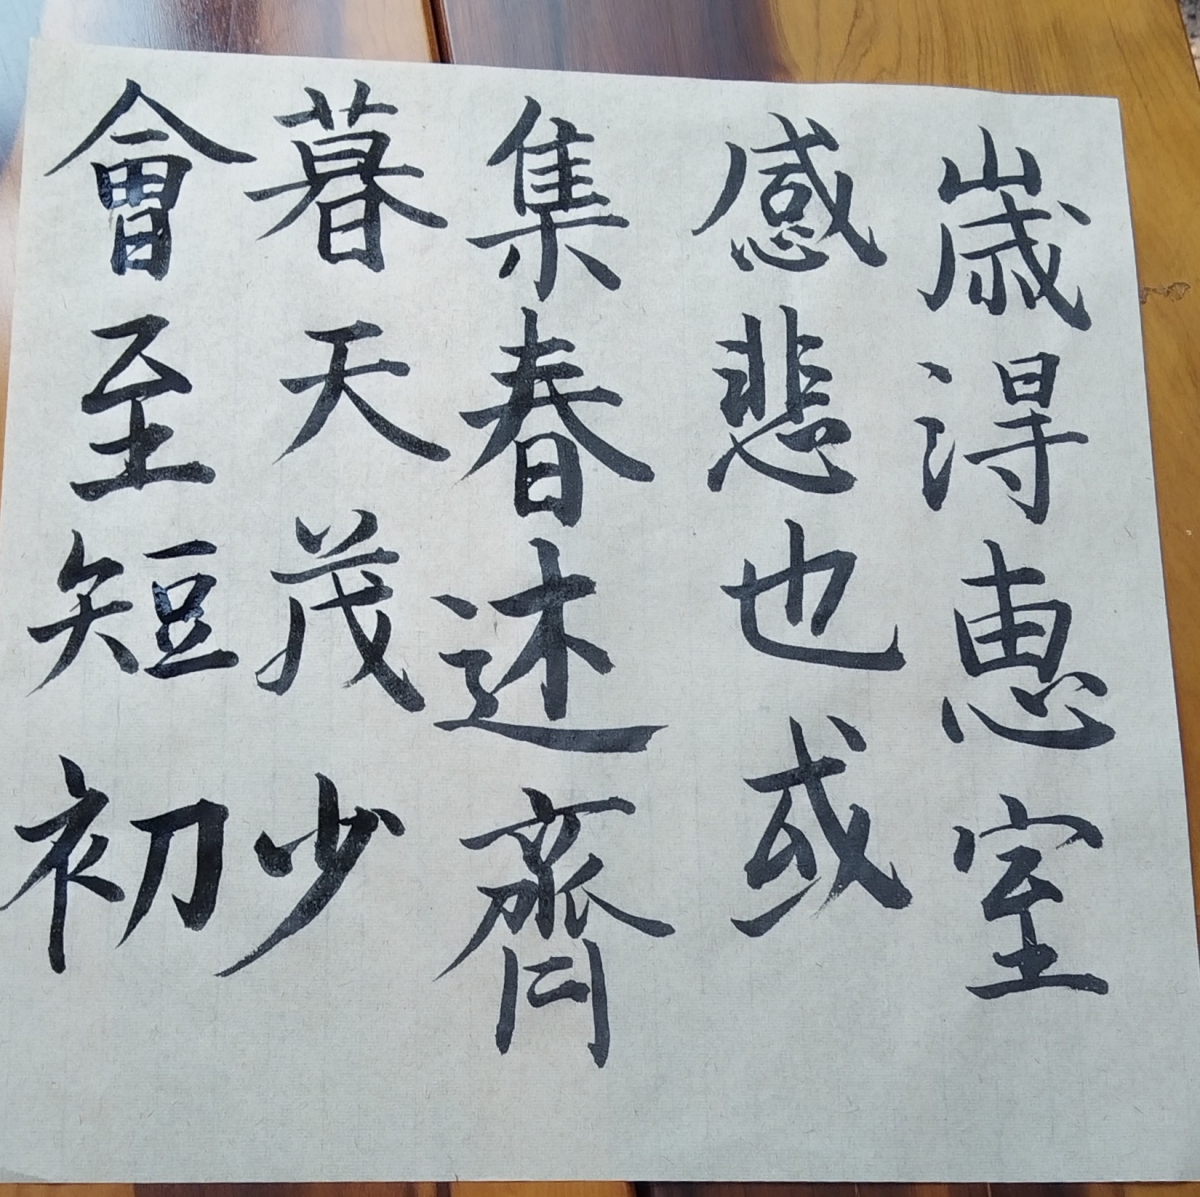 歲得惠室
感悲也或
集春述齊
暮天茂少
會至短初